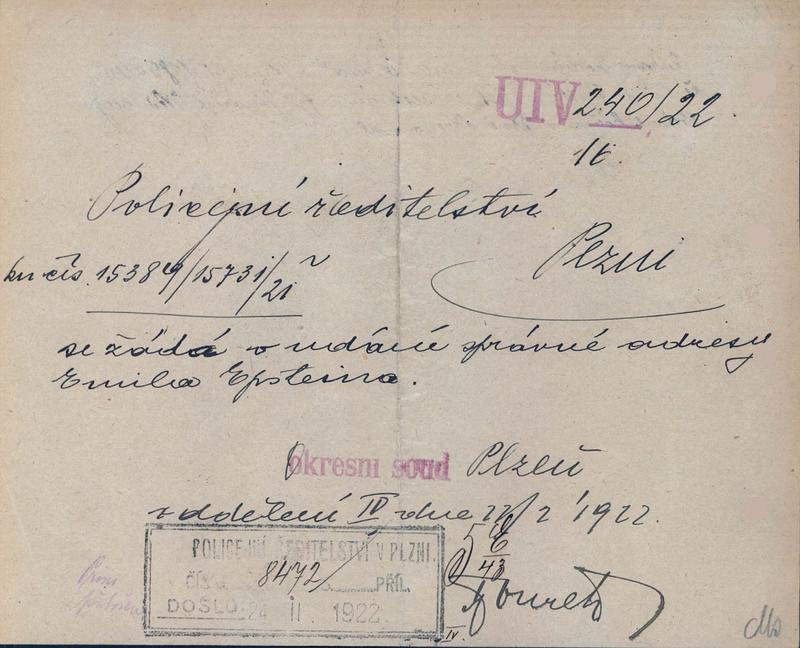 UIV 240/22
Policejní ředitelství
Plzni
ku čís. 15384/15731/21
se žádá o udání správné adresy
Emila Epsteina.
Okresní soud Plzeň
oddělení IV dne 22/2 1922.
POLICEJNÍ ŘEDITELSTVÍ V PLZNI.
ČÍS. 8472/ PŘÍL.
DOŠLO: 24 II. 1922
IV.